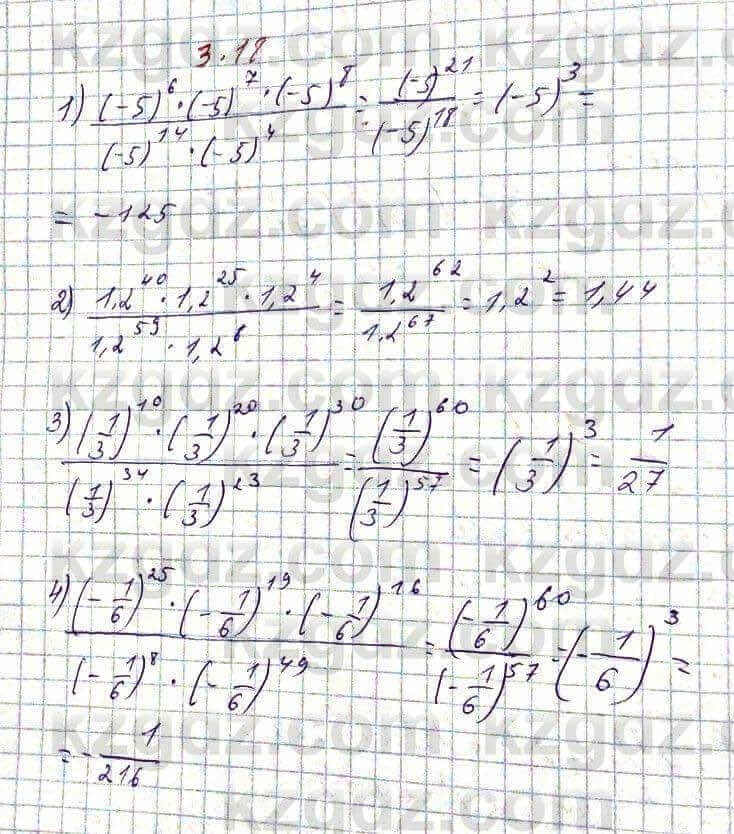 3.18
1) ((-5)^6 · (-5)^7 · (-5)^8)/((-5)^14 · (-5)^4) = (-5)^21/(-5)^18 = (-5)^3 =
= -125
2) (1,2^40 · 1,2^25 · 1,2^4)/(1,2^59 · 1,2^8) = 1,2^62/1,2^67 = 1,2^2 = 1,44
3) ((1/3)^10 · (1/3)^20 · (1/3)^30)/((1/3)^34 · (1/3)^23) = (1/3)^60/(1/3)^57 = (1/3)^3 = 1/27
4) ((-1/6)^25 · (-1/6)^19 · (-1/6)^16)/((-1/6)^8 · (-1/6)^49) = (-1/6)^60/(-1/6)^57 = (-1/6)^3 =
= -1/216
kzgdz.com